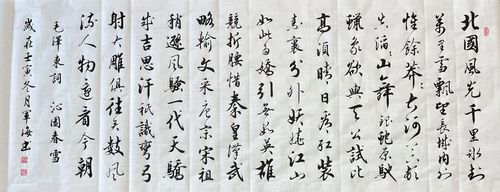 北國風光千里冰封
萬里雪飄望長城内外
惟餘莽々大河上下頓
失滔々山舞銀蛇原馳
蠟象欲與天公試比
高須晴日看紅裝
素裹分外妖嬈江山
如此多嬌引無數英雄
競折腰惜秦皇漢武
略輸文采唐宗宋祖
稍遜風騷一代天驕
成吉思汗祇識彎弓
射大雕俱往矣數風
流人物還看今朝
毛澤東詞 沁園春雪
歲在壬寅冬月軍海書